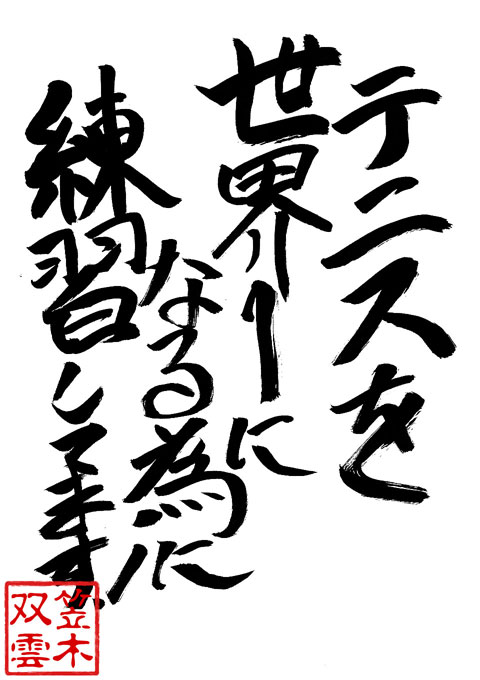 テニスを
世界1に
なる為に
練習してます
笠木
双雲